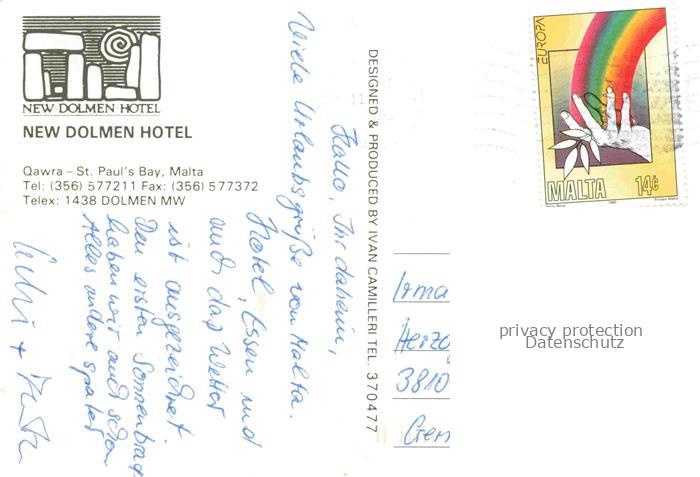 NEW DOLMEN HOTEL
NEW DOLMEN HOTEL
Qawra – St. Paul's Bay, Malta
Tel: (356) 577211 Fax: (356) 577372
Telex: 1438 DOLMEN MW
Hallo, Ihr daheim,
Viele Urlaubsgrüße von Malta.
Hotel, Essen und
auch das Wetter
ist ausgezeichnet.
Den ersten Sonnenbrand
haben wir auch schon
Alles andere später
DESIGNED & PRODUCED BY IVAN CAMILLERI TEL. 370477
EUROPA
MALTA 14c
Irma
Herzo
3810
Ger
privacy protection
Datenschutz